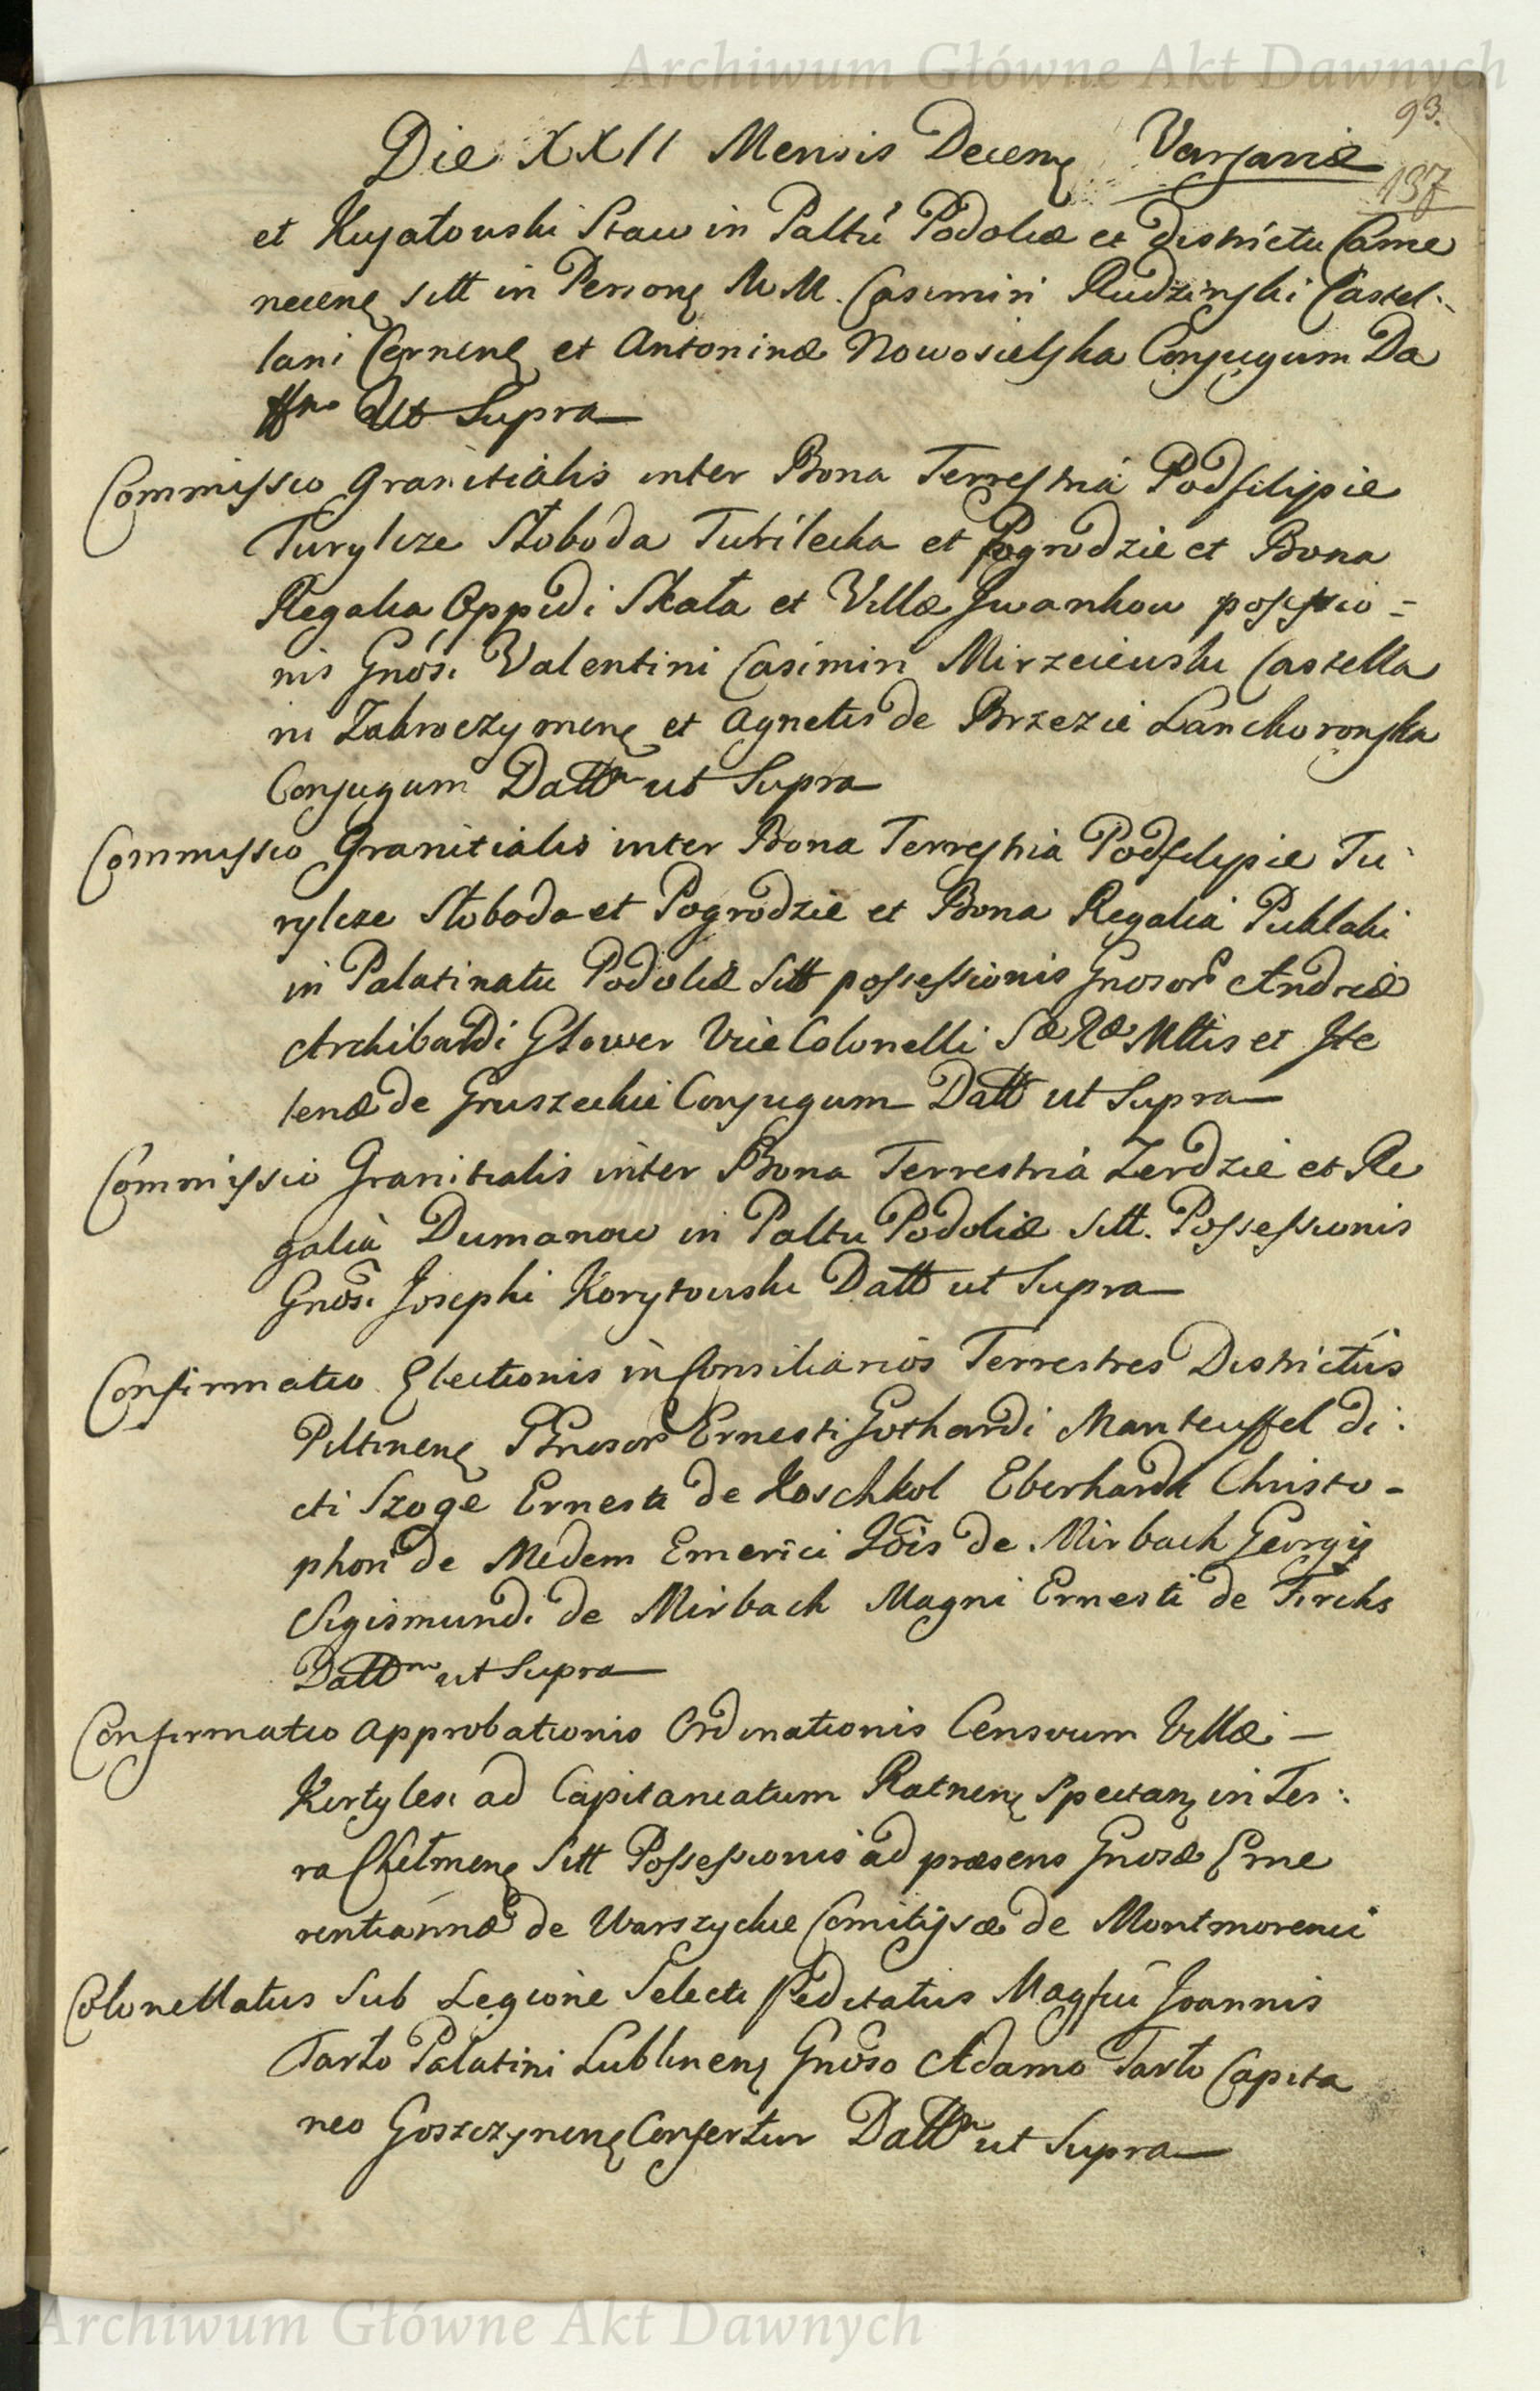 Archiwum Główne Akt Dawnych
93.
Die XXII Mensis Decemę Varsaviæ
137
et Kujatowski Staw in Palttu Podoliæ et districtu Came
necenę sitt in Personę M M. Casimiri Rudzinski Castel-
lani Cernenę et Antoninæ Nowosielska Conjugum Da
ttm Ut Supra
Commissio Granitialis inter Bona Terrestria Podfilipie
Turylcze Słoboda Turilecka et Pogrodzie et Bona
Regalia Oppidi Skała et Villæ Iwankow possessio=
nis Gnosi Valentini Casimiri Mirzeiewski Castella
ni Zakroczymenę et Agnetis de Brzezie Lanckoronska
Conjugum Dattm ut Supra
Commissio Granitialis inter Bona Terrestria Podfilipie Tu
rylcze Słoboda et Pogrodzie et Bona Regalia Puklaki
in Palatinatu Podoliæ Sitt possessionis Gnosor Andreæ
Archibaldi Glower Vice Colonelli Sæ Ræ Mttis et He
lenæ de Gruszeckie Conjugum Datt ut Supra
Commissio Granitialis inter Bona Terrestria Zerdzie et Re
galia Dumanow in Paltu Podoliæ Sitt. Possessionis
Gnosi Josephi Korytowski Datt ut Supra
Confirmatio Electionis in Consiliarios Terrestres Districtus
Piltinenę Gnosor Ernesti Gothardi Manteuffel di:
cti Szoge Ernesti de Koschkol Eberhardi Christo-
phori de Medem Emerici Jois de Mirbach Georgij
Sigismundi de Mirbach Magni Ernesti de Firchs
Dattm ut Supra
Confirmatio Approbationis Ordinationis Censuum Villæ -
Kortylesi ad Capitaneatum Ratnenę Spectanę in Ter:
ra Chełmenę Sitt Possessionis ad præsens Gnosæ Eme
rentiannæ de Warszyckie Comitissæ de Montmorenci
Colonellatus Sub Legione Selecti Peditatus Magfici Joannis
Tarło Palatini Lublinenę Gnoso Adamo Tarło Capita
neo Goszczynenę Confertur Dattm ut Supra
Archiwum Główne Akt Dawnych